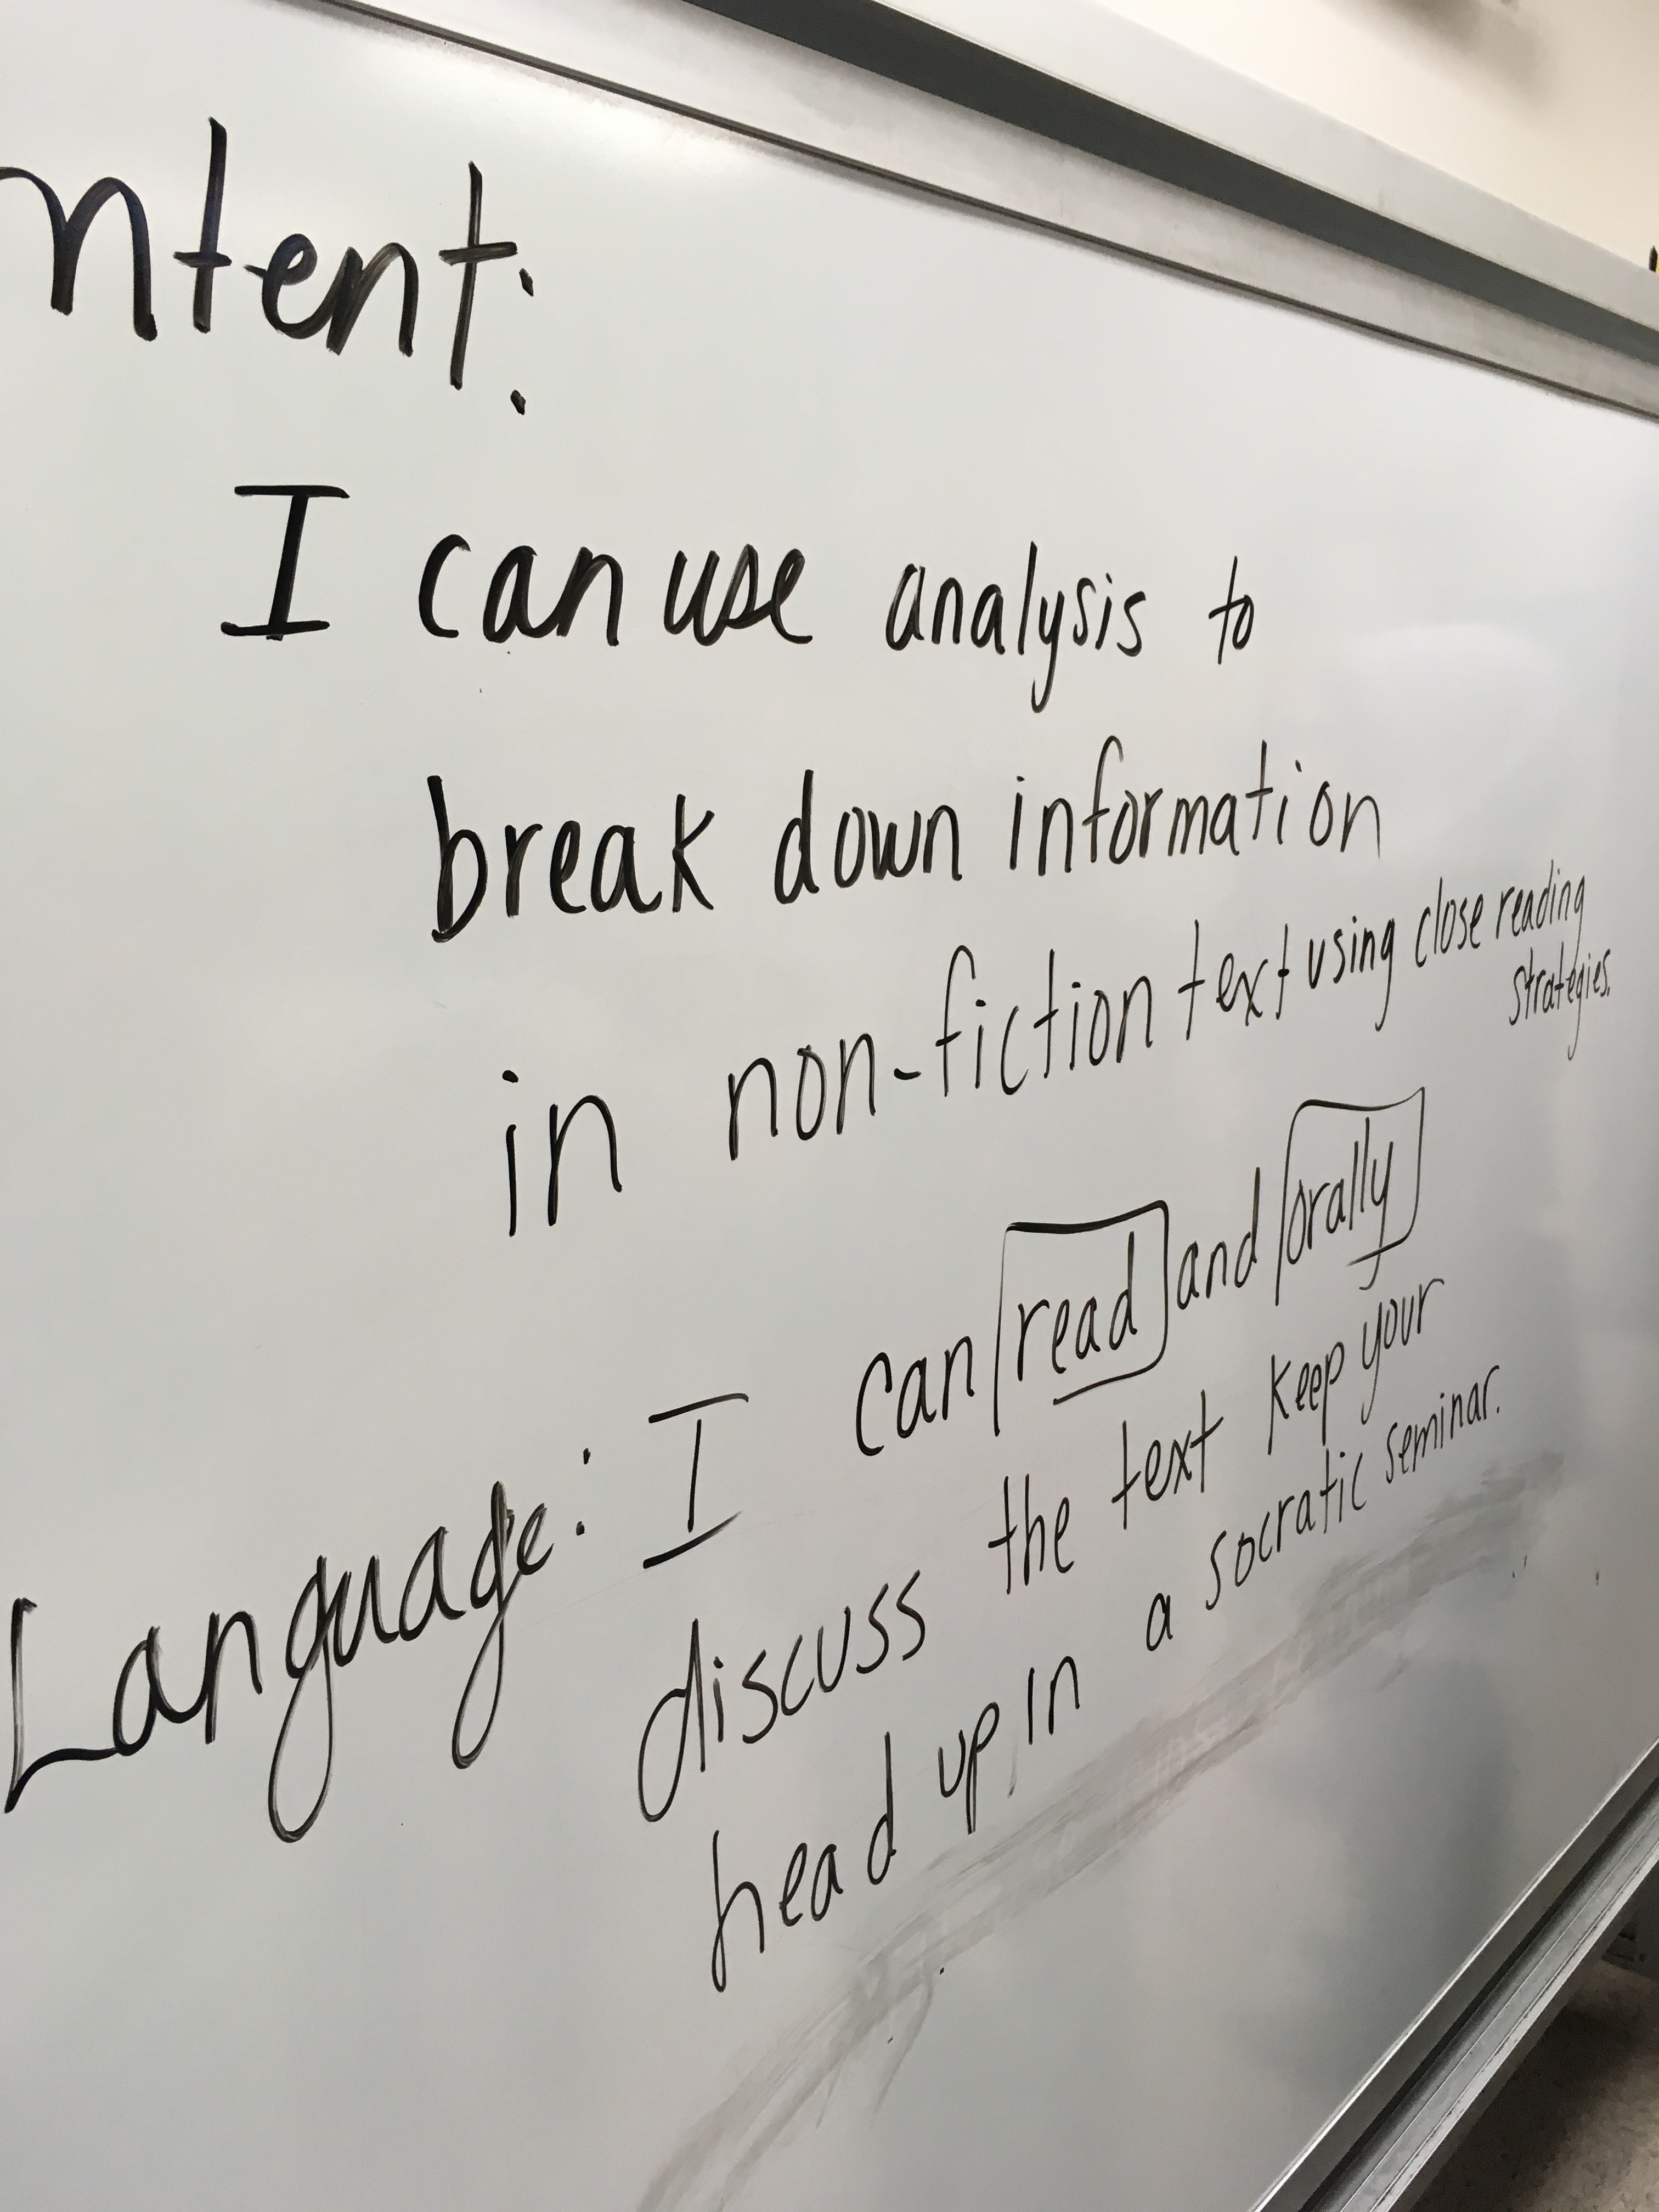 ntent:
I can use analysis to
break down information
in non-fiction text using close reading
strategies.
Language: I can read and orally
discuss the text keep your
head up, in a socratic seminar.